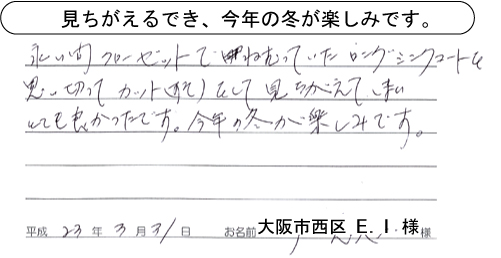 見ちがえるでき、今年の冬が楽しみです。
永い間クローゼットで眠っていたロングコートを
思い切ってカット(すそ)をして見ちがえてしまい
とても良かったです。今年の冬が楽しみです。
平成 23 年 3 月 31 日 お名前 大阪市西区 E. I. 様 様